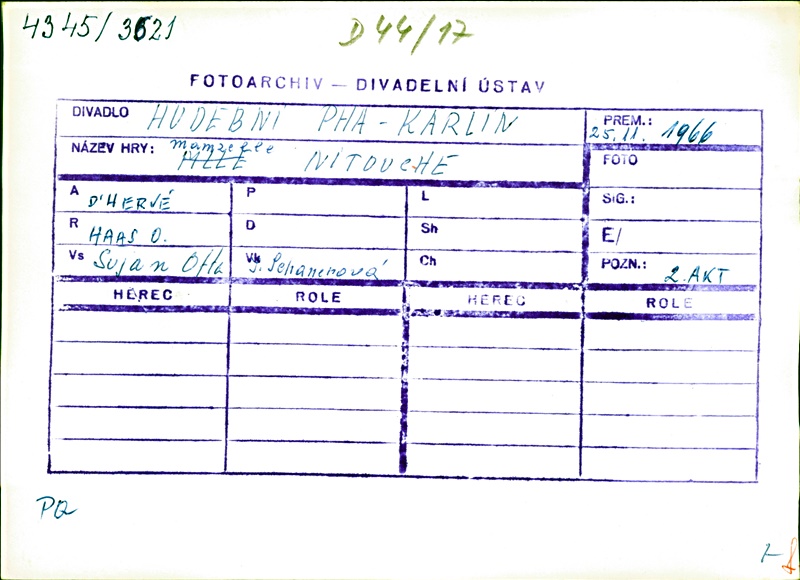 4345/3621
D44/17
FOTOARCHIV — DIVADELNÍ ÚSTAV
DIVADLO HUDEBNI PHA - KARLIN
PREM.: 25.11. 1966
NÁZEV HRY: mamzelle MLLE NITOUCHE
FOTO
A D'HERVÉ P L SIG.:
R HAAS O. D Sh E/
Vs Sujan Otta Vk Ch POZN.: 2. AKT
HEREC ROLE HEREC ROLE
PQ